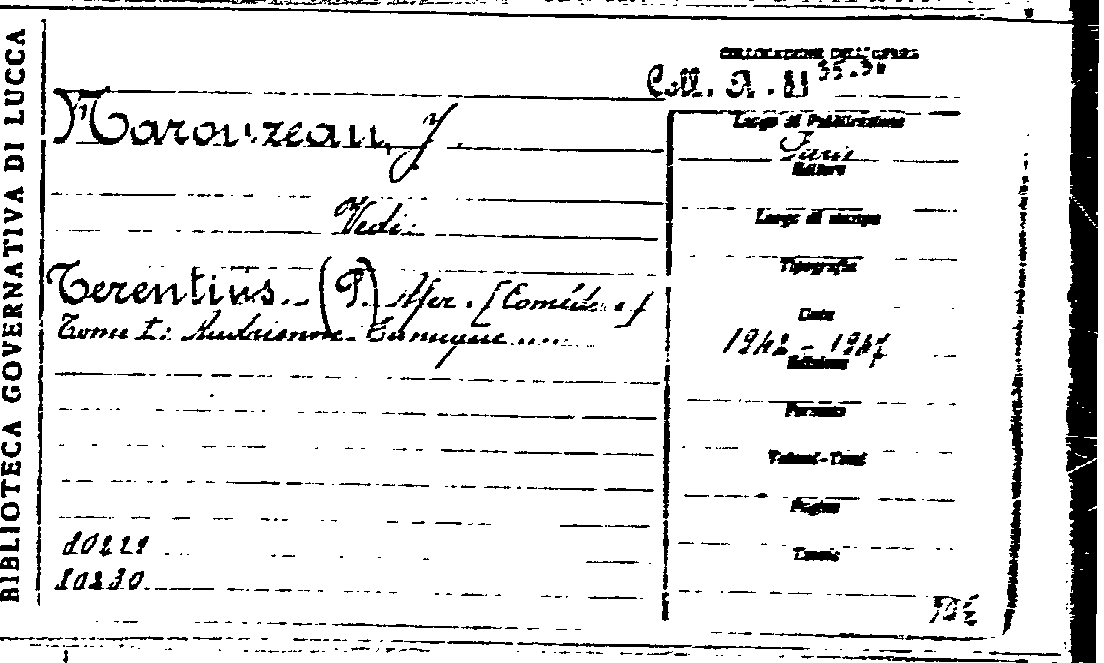 BIBLIOTECA GOVERNATIVA DI LUCCA
COLLOCAZIONE DELL'OPERA
Coll. A. 81
Marouzeau, J
Vedi:
Terentius. (P.) Afer. [Comédies]
Tome I: Andrienne - Eunuque.....
Luogo di Pubblicazione
Paris
Editore
Luogo di stampa
Tipografia
Data
1942 - 1947
Edizione
Formato
Volumi-Tomi
Pagine
Tavole
10230